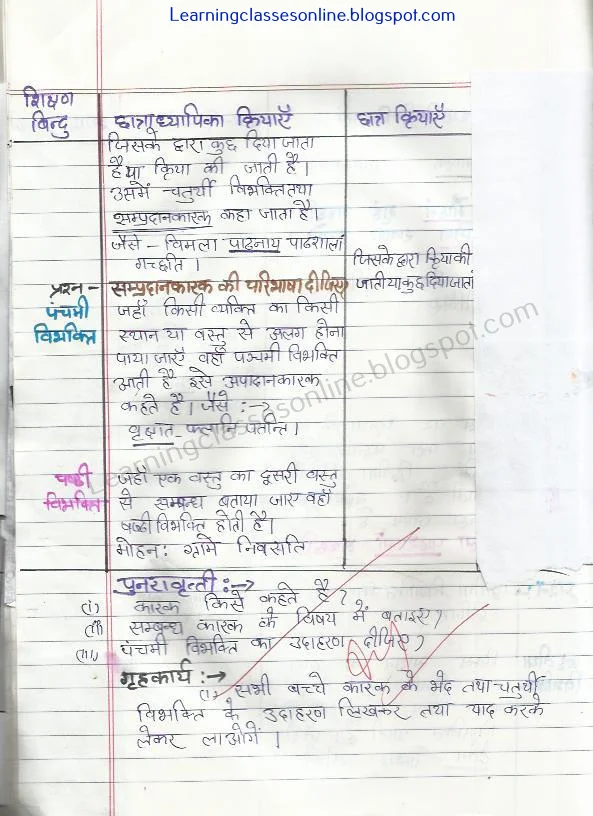 Learningclassesonline.blogspot.com
शिक्षण
बिन्दु
छात्राध्यापिका क्रियाएँ
छात्र क्रियाएँ
जिसके द्वारा कुछ दिया जाता
है या क्रिया की जाती है।
उसमें चतुर्थी विभक्ति तथा
सम्प्रदानकारक कहा जाता है।
जैसे - विमला पाठनाय पाठशालां
गच्छति।
जिसके द्वारा क्रिया की
जाती या कुछ दिया जाता
प्रश्न - सम्प्रदानकारक की परिभाषा दीजिए
पंचमी
विभक्ति
जहाँ किसी व्यक्ति का किसी
स्थान या वस्तु से अलग होना
पाया जाएँ वहाँ पञ्चमी विभक्ति
आती है इसे अपादानकारक
कहते है। जैसे :→
वृक्षात फलानि पतन्ति।
Learningclassesonline.blogspot.com
षष्ठी
विभक्ति
जहाँ एक वस्तु का दूसरी वस्तु
से सम्बन्ध बताया जाए वहाँ
षष्ठी विभक्ति होती है।
मोहन: ग्रामे निवसति
पुनरावृत्ती :→
(i) कारक किसे कहते है?
(ii) सम्बन्ध कारक के विषय में बताइए?
(iii) पंचमी विभक्ति का उदाहरण दीजिए?
गृहकार्य :→
(i) सभी बच्चे कारक के भेद तथा चतुर्थी
विभक्ति के उदाहरण लिखकर तथा याद करके
लेकर लाओगें।